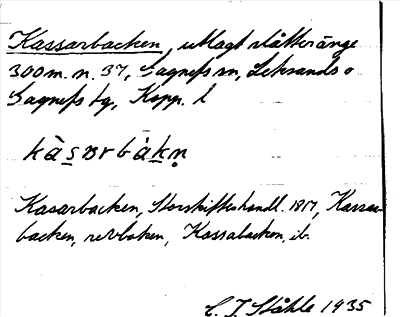 Kassarbacken, utlagt slåtteränge
300 m. n. 37, Gagnefs sn, Leksands o
Gagnefs tg, Kopp. l
kàsɐrbákṇ
Kasarbacken, Storskifteshandl. 1817, Kassar-
backen, revboken, Kassabacken, ib.
C. I. Ståhle 1935